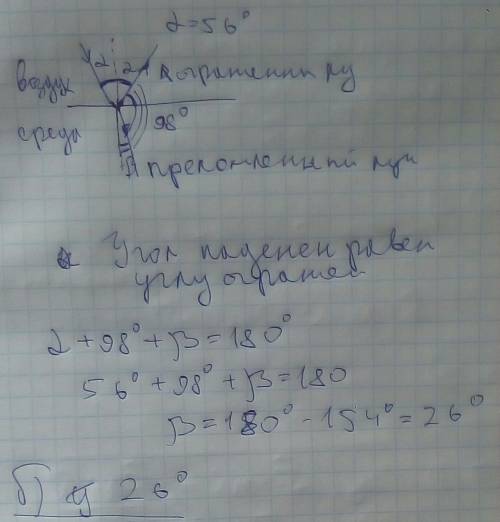 α=56°
α α
воздух
отраженный лу
среда
98°
β
преломленный луч
Угол паденеи равен
углу отражен
α+98°+β=180°
56°+98°+β=180
β=180°-154°=26°
б) 26°